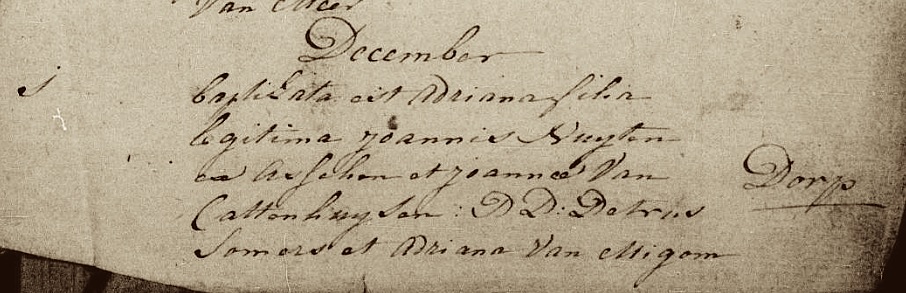 Van Meer
December
j
baptizata est Adriana filia
legitima Joannis Nuyten
ex Asschen et Joannæ Van
Cattenhuysen : D D: Petrus
Somers et Adriana Van Migom
Dorp